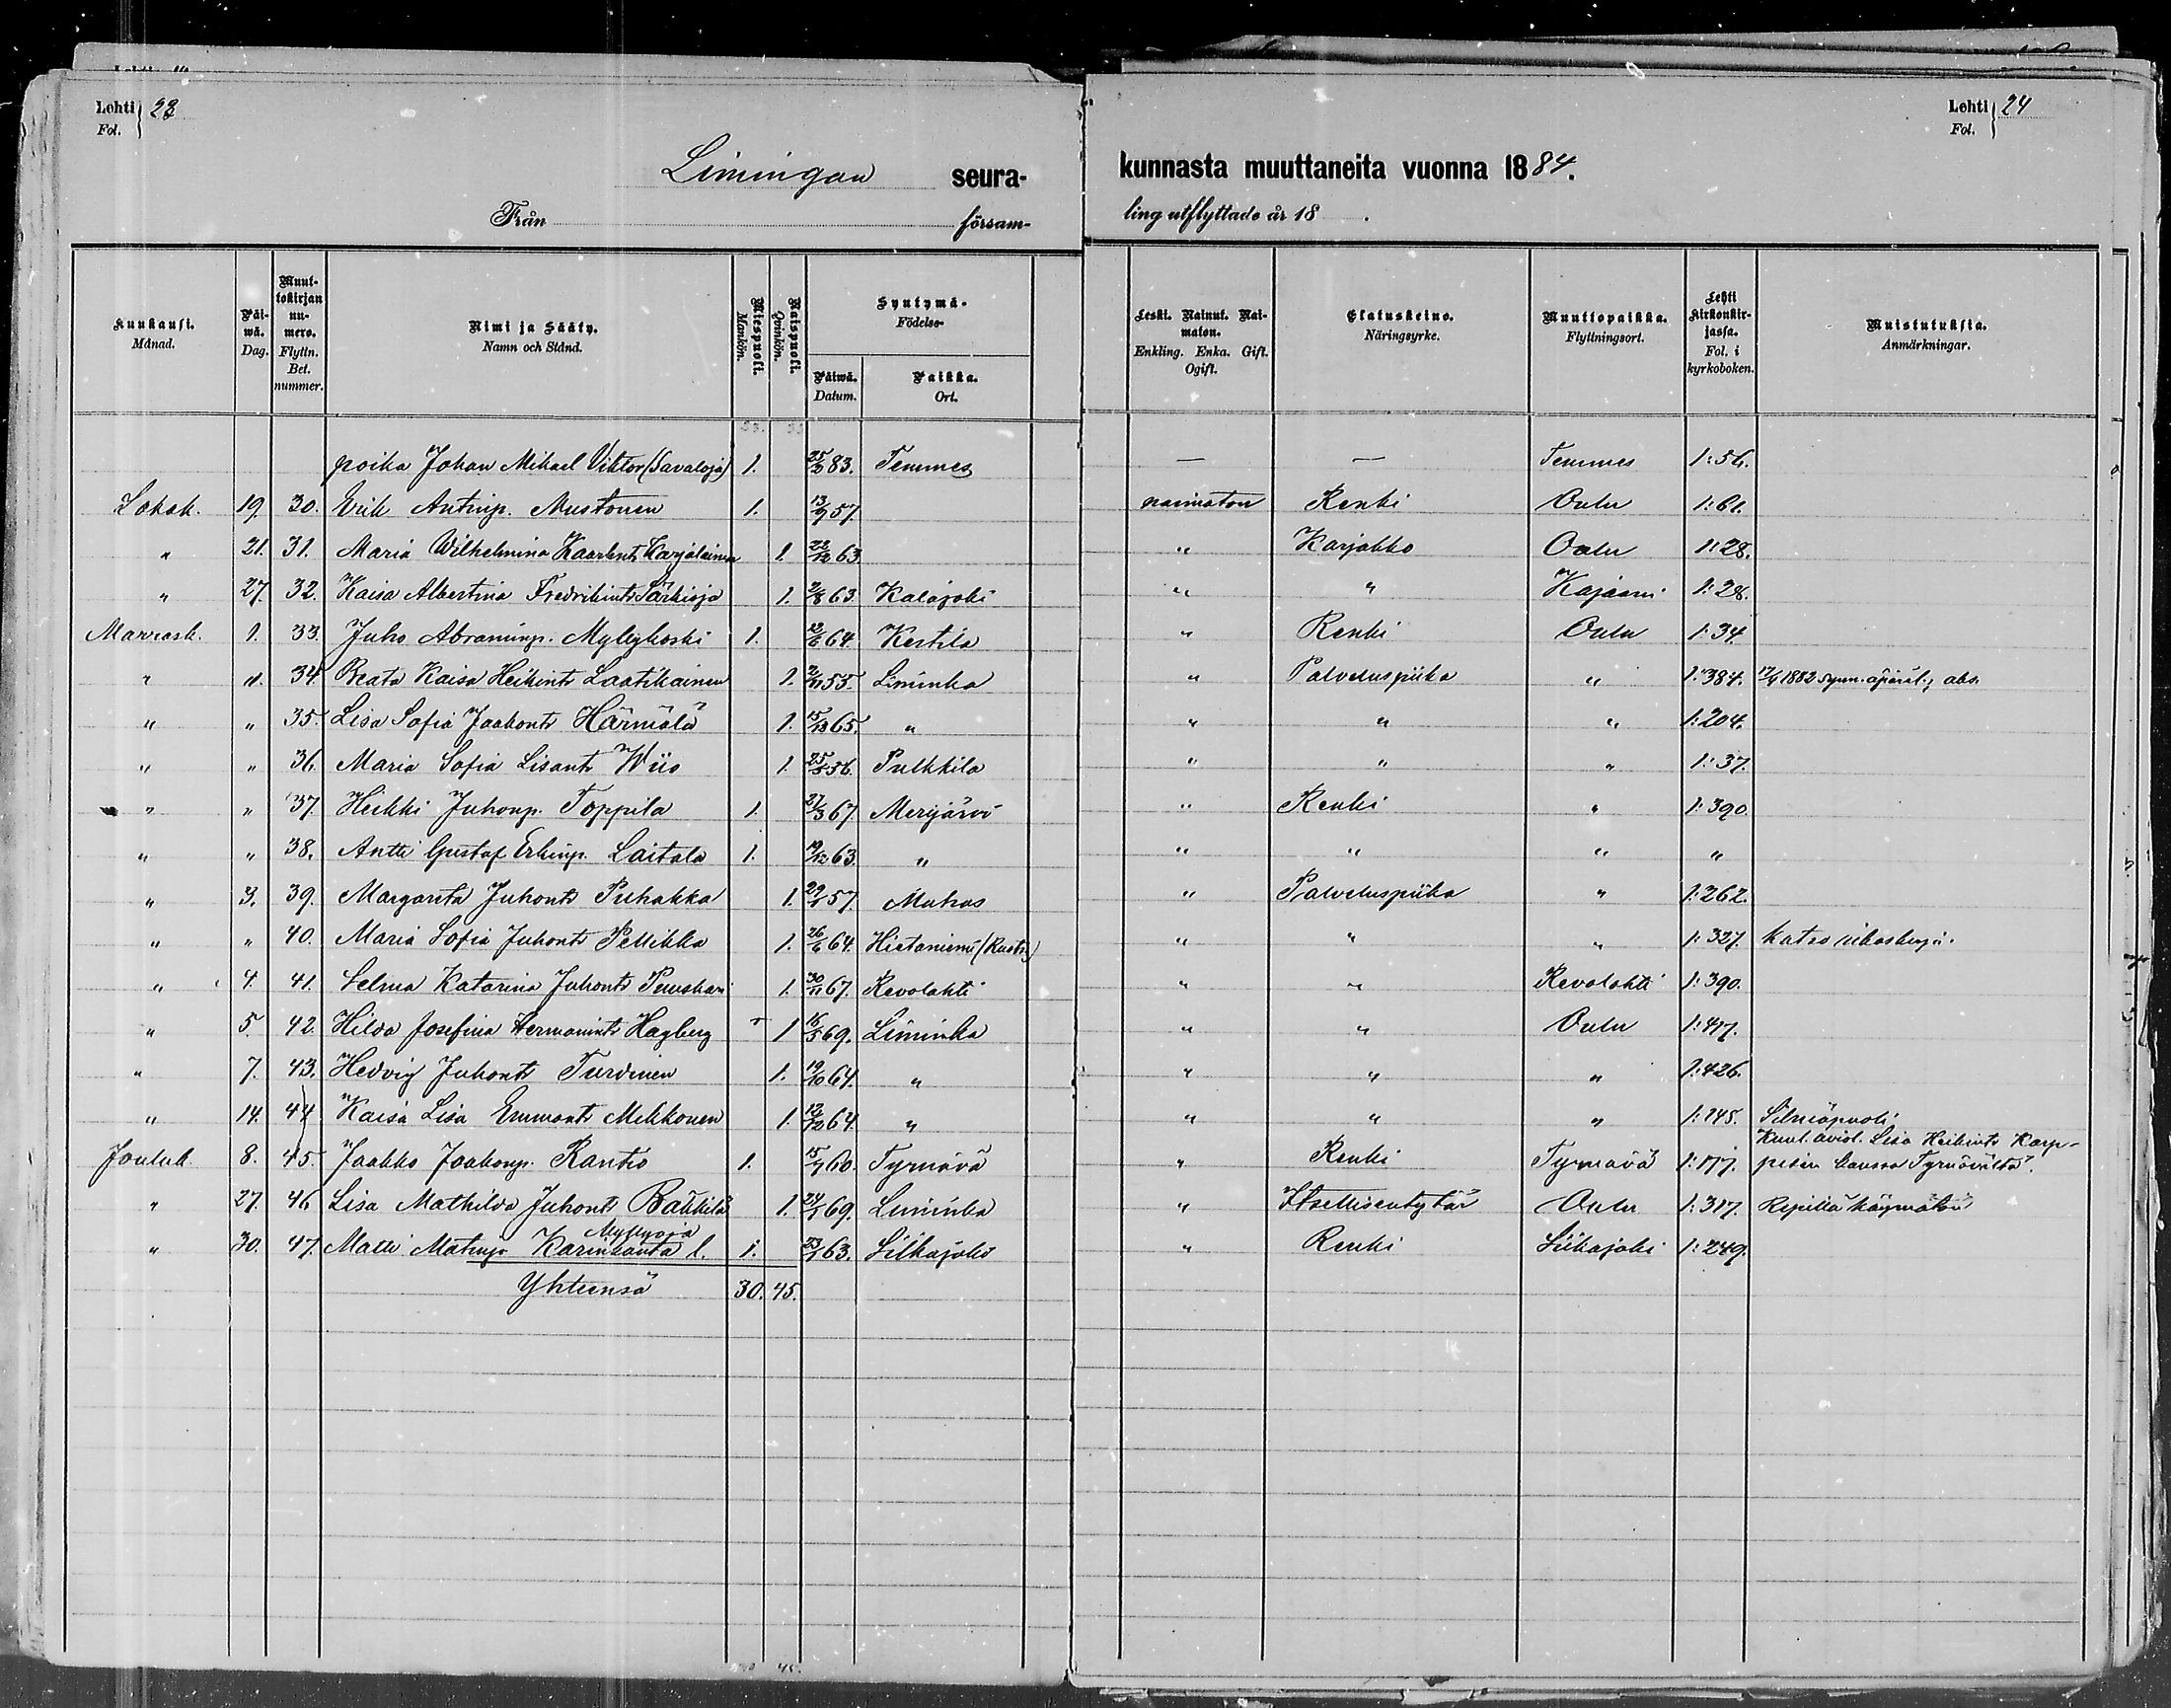 Lehti 23
Fol.
Limingan seura-
Från försam-
Lehti 24
Fol.
kunnasta muuttaneita vuonna 1884.
ling utflyttade år 18 .
Kuukausi. Månad. Päi-wä. Dag. Muut-tokirjan nu-mero. Flyttn. Bet. nummer. Nimi ja Sääty. Namn och Stånd. Miespuoli. Mankön. Naispuoli. Qvinkön. Syntymä- Födelse- Päiwä. Datum. Paikka. Ort. Leski. Nainut. Nai-maton. Enkling. Enka. Gift. Ogift. Elatuskeino. Näringsyrke. Muuttopaikka. Flyttningsort. Lehti kirkonkir-jassa. Fol. i kyrkoboken. Muistutuksia. Anmärkningar.
poika Johan Mikael Viktor (Savaloja) 1. 83. Temmes — — Temmes 1:56.
Lokak. 19. 30. Erik Antinp. Mustonen 1. 57. naimaton Renki Oulu 1:61.
" 21. 31. Maria Wilhelmina Kaarlent. Karjalainen 1. 22/12 63. " Karjakko Oulu 1:28.
" 27. 32. Kaisa Albertina Fredrikint. Särkioja 1. 2/8 63. Kalajoki " " Kajaani 1:28.
Marrask. 1. 33. Juho Abraminp. Mylykoski 1. 12/6 64. Kestilä " Renki Oulu 1:34.
" 34. Beata Kaisa Heikint. Laatikainen 1. 2/11 55. Liminka " Palveluspiika " 1:384. 1882 synn. äpäril.; abs.
" " 35. Lisa Sofia Jaakont. Härmälä 1. 65. " " " " 1:204.
" " 36. Maria Sofia Lisant. Wiio 1. 56. Pulkkila " " " 1:37.
" " 37. Heikki Juhonp. Toppila 1. 27/3 67. Merijärvi " Renki " 1:390.
" " 38. Antti Gustaf Erkinp. Laitala 1. 63. " " " " "
" 3. 39. Margareta Juhont. Puhakka 1. 57. Muhos " Palveluspiika " 1:262.
" " 40. Maria Sofia Juhont. Pellikka 1. 26/6 64. Hietaniemi (Ruots.) " " " 1:327. katso
" 4. 41. Selma Katarina Juhont. 1. 30/11 67. Revolahti " " Revolahti 1:390.
" 5. 42. Hilda Josefina Hermanint. Hagberg 1 16/5 69. Liminka " " Oulu 1:417.
" 7. 43. Hedvig Juhont. Turvinen 1. 19/10 64. " " " " 1:426.
" 14. 44. Kaisa Lisa Emmant. Mikkonen 1. 12/12 64. " " " " 1:245. Silmäpuoli
Jouluk. 8. 45. Jaakko Jaakonp. Rantio 1. 60. Tyrnävä " Renki Tyrnävä 1:177. Kuul. aviol. Lisa Heikint. Karp-
pisen kanssa Tyrnävältä.
" 27. 46. Lisa Mathilda Juhont. 1. 69. Liminka " Itsellisentytär Oulu 1:317. Ripillä käymätön
Myllyoja
" 30. 47. Matti Matinp. Karinkanta l. 1. 63. Siikajoki " Renki Siikajoki 1:249.
Yhteensä 30. 45.